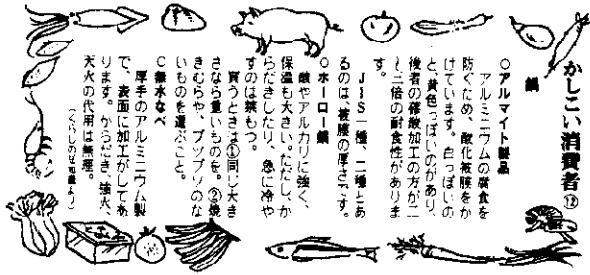 かしこい消費者⑫
鍋
○アルマイト製品
アルミニウムの腐食を
防ぐため、酸化被膜をか
けています。白っぽいの
と、黄色っぽいのがあり、
後者の修酸加工の方が二
、三倍の耐食性がありま
す。
JIS一種、二種とあ
るのは、被膜の厚さです。
○ホーロー鍋
酸やアルカリに強く、
保温も大きい。ただし、か
らだきしたり、急に冷や
すのは禁もつ。
買うときは①同じ大き
さなら重いものを。②焼
きむらや、ブツブツのな
いものを選ぶこと。
○無水なべ
厚手のアルミニウム製
で、表面に加工がしてあ
ります。からだき、強火、
天火の代用は無理。
(くらしの豆知識より)